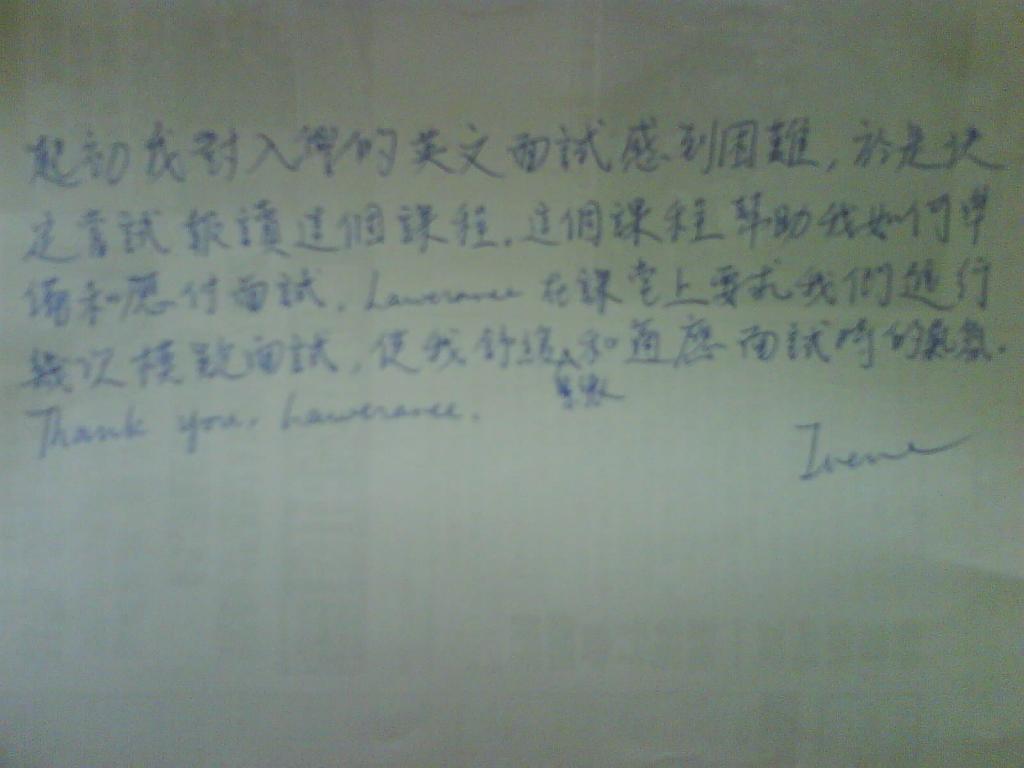 起初我對入學的英文面試感到困難,於是決
定嘗試報讀這個課程。這個課程幫助我如何準
備和應付面試。Lawerance 在課堂上要求我們進行
幾次模擬面試,使我舒緩緊張和適應面試時的氣氛。
Thank you, Lawerance.
Irene